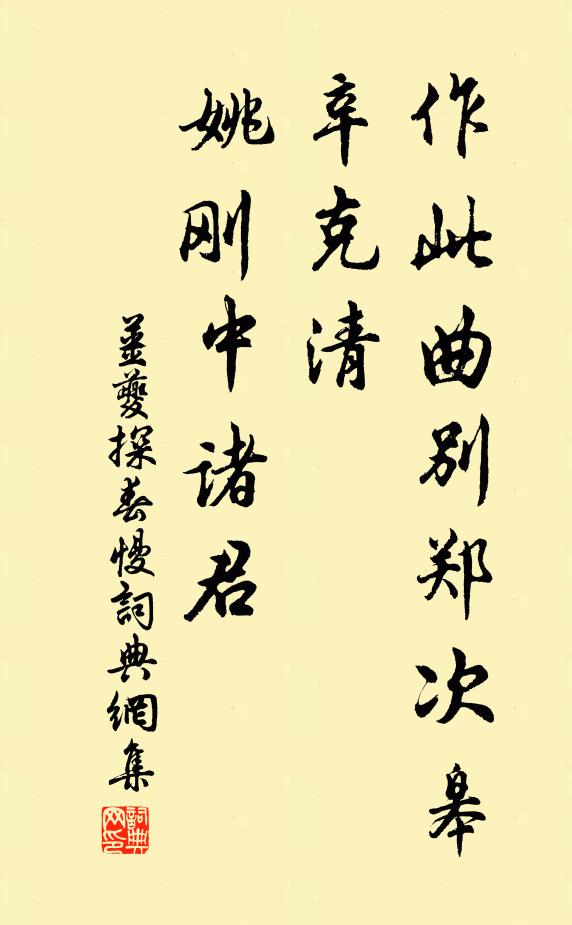 作此曲别郑次皋
辛克清
姚刚中诸君
姜夔探春慢詞典網集
詞典網印